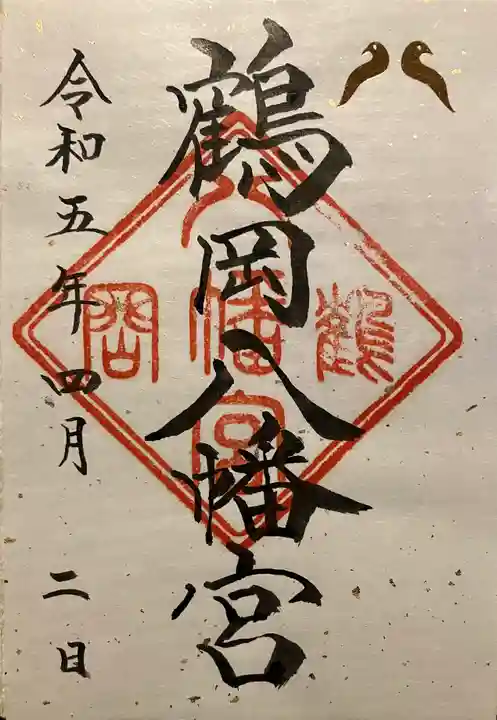 鶴岡八幡宮
令和五年四月二日
鶴
八幡宮
岡